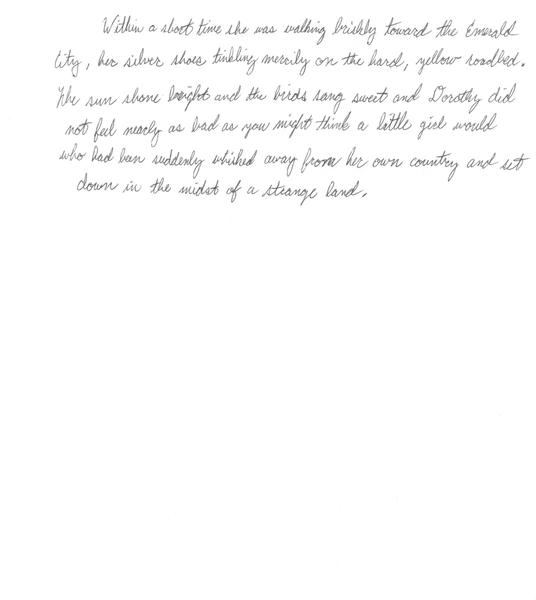 Within a short time she was walking briskly toward the Emerald
City, her silver shoes tinkling merrily on the hard, yellow roadbed.
The sun shone bright and the birds sang sweet and Dorothy did
not feel nearly as bad as you might think a little girl would
who had been suddenly whisked away from her own country and set
down in the midst of a strange land.